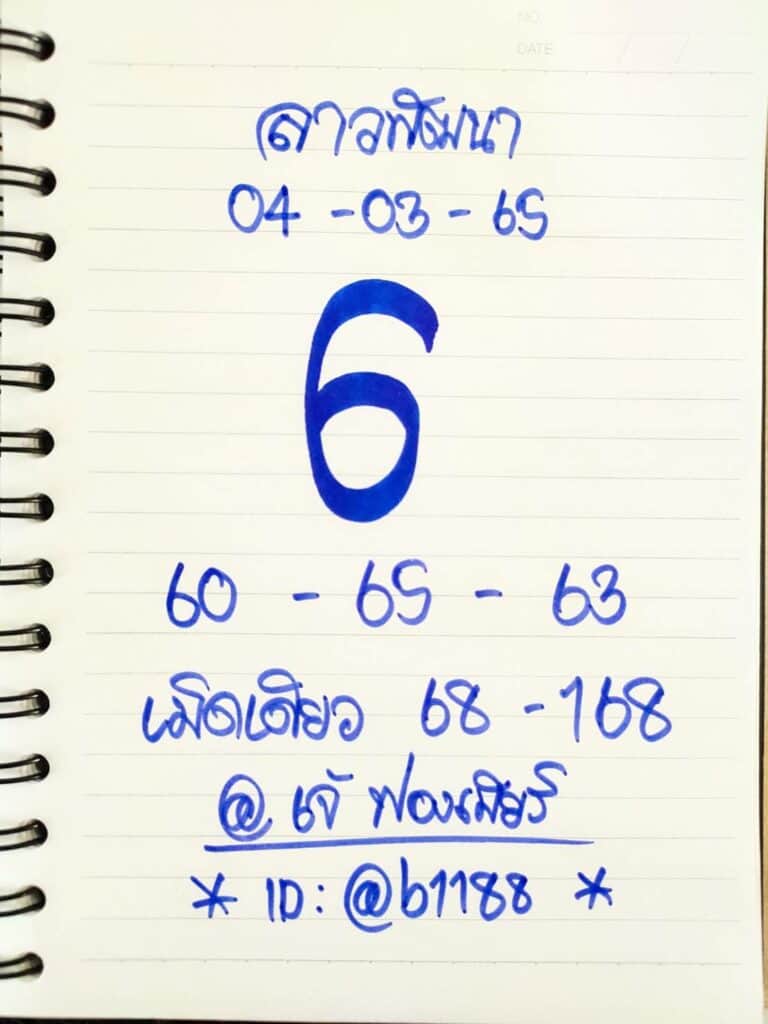 NO.
DATE / /
ลาวพัฒนา
04 - 03 - 65
6
60 - 65 - 63
เม็ดเดียว 68 - 168
@. เจ๊ ฟองเบียร์
* ID: @b1188 *